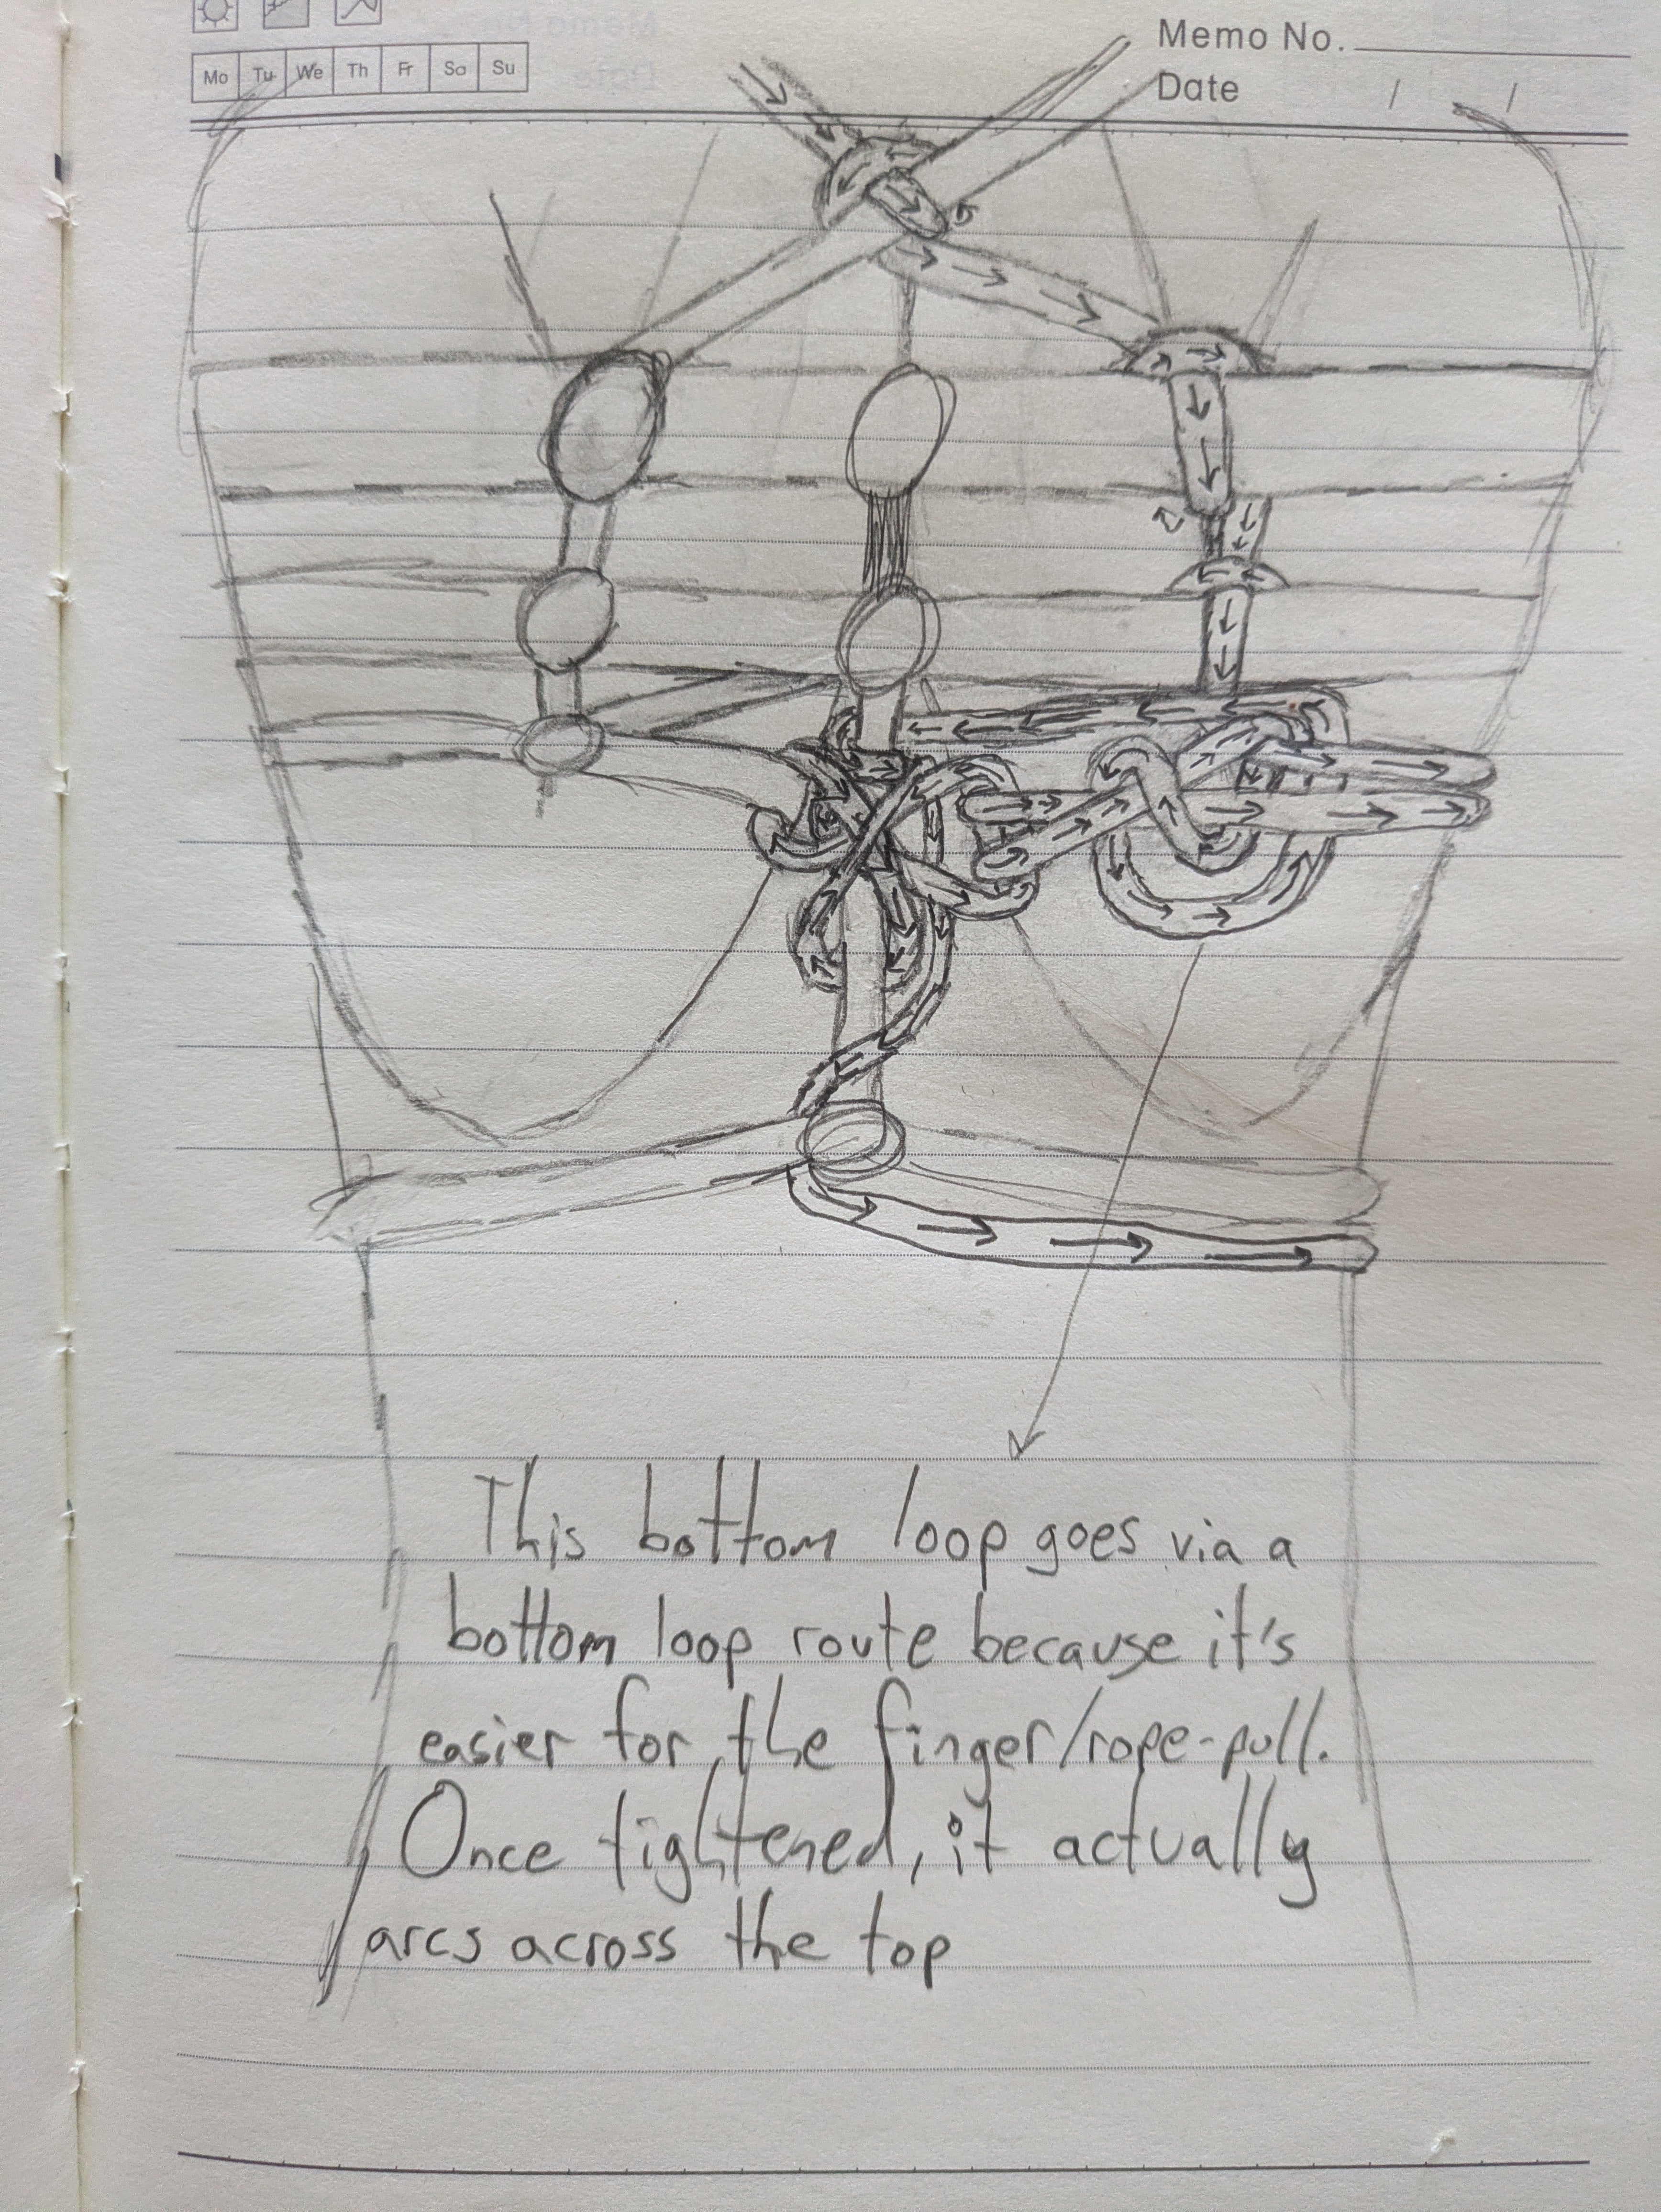 Memo No.
Mo Tu We Th Fr Sa Su
Date / /
This bottom loop goes via a
bottom loop route because it's
easier for the finger/rope-pull.
Once tightened, it actually
arcs across the top